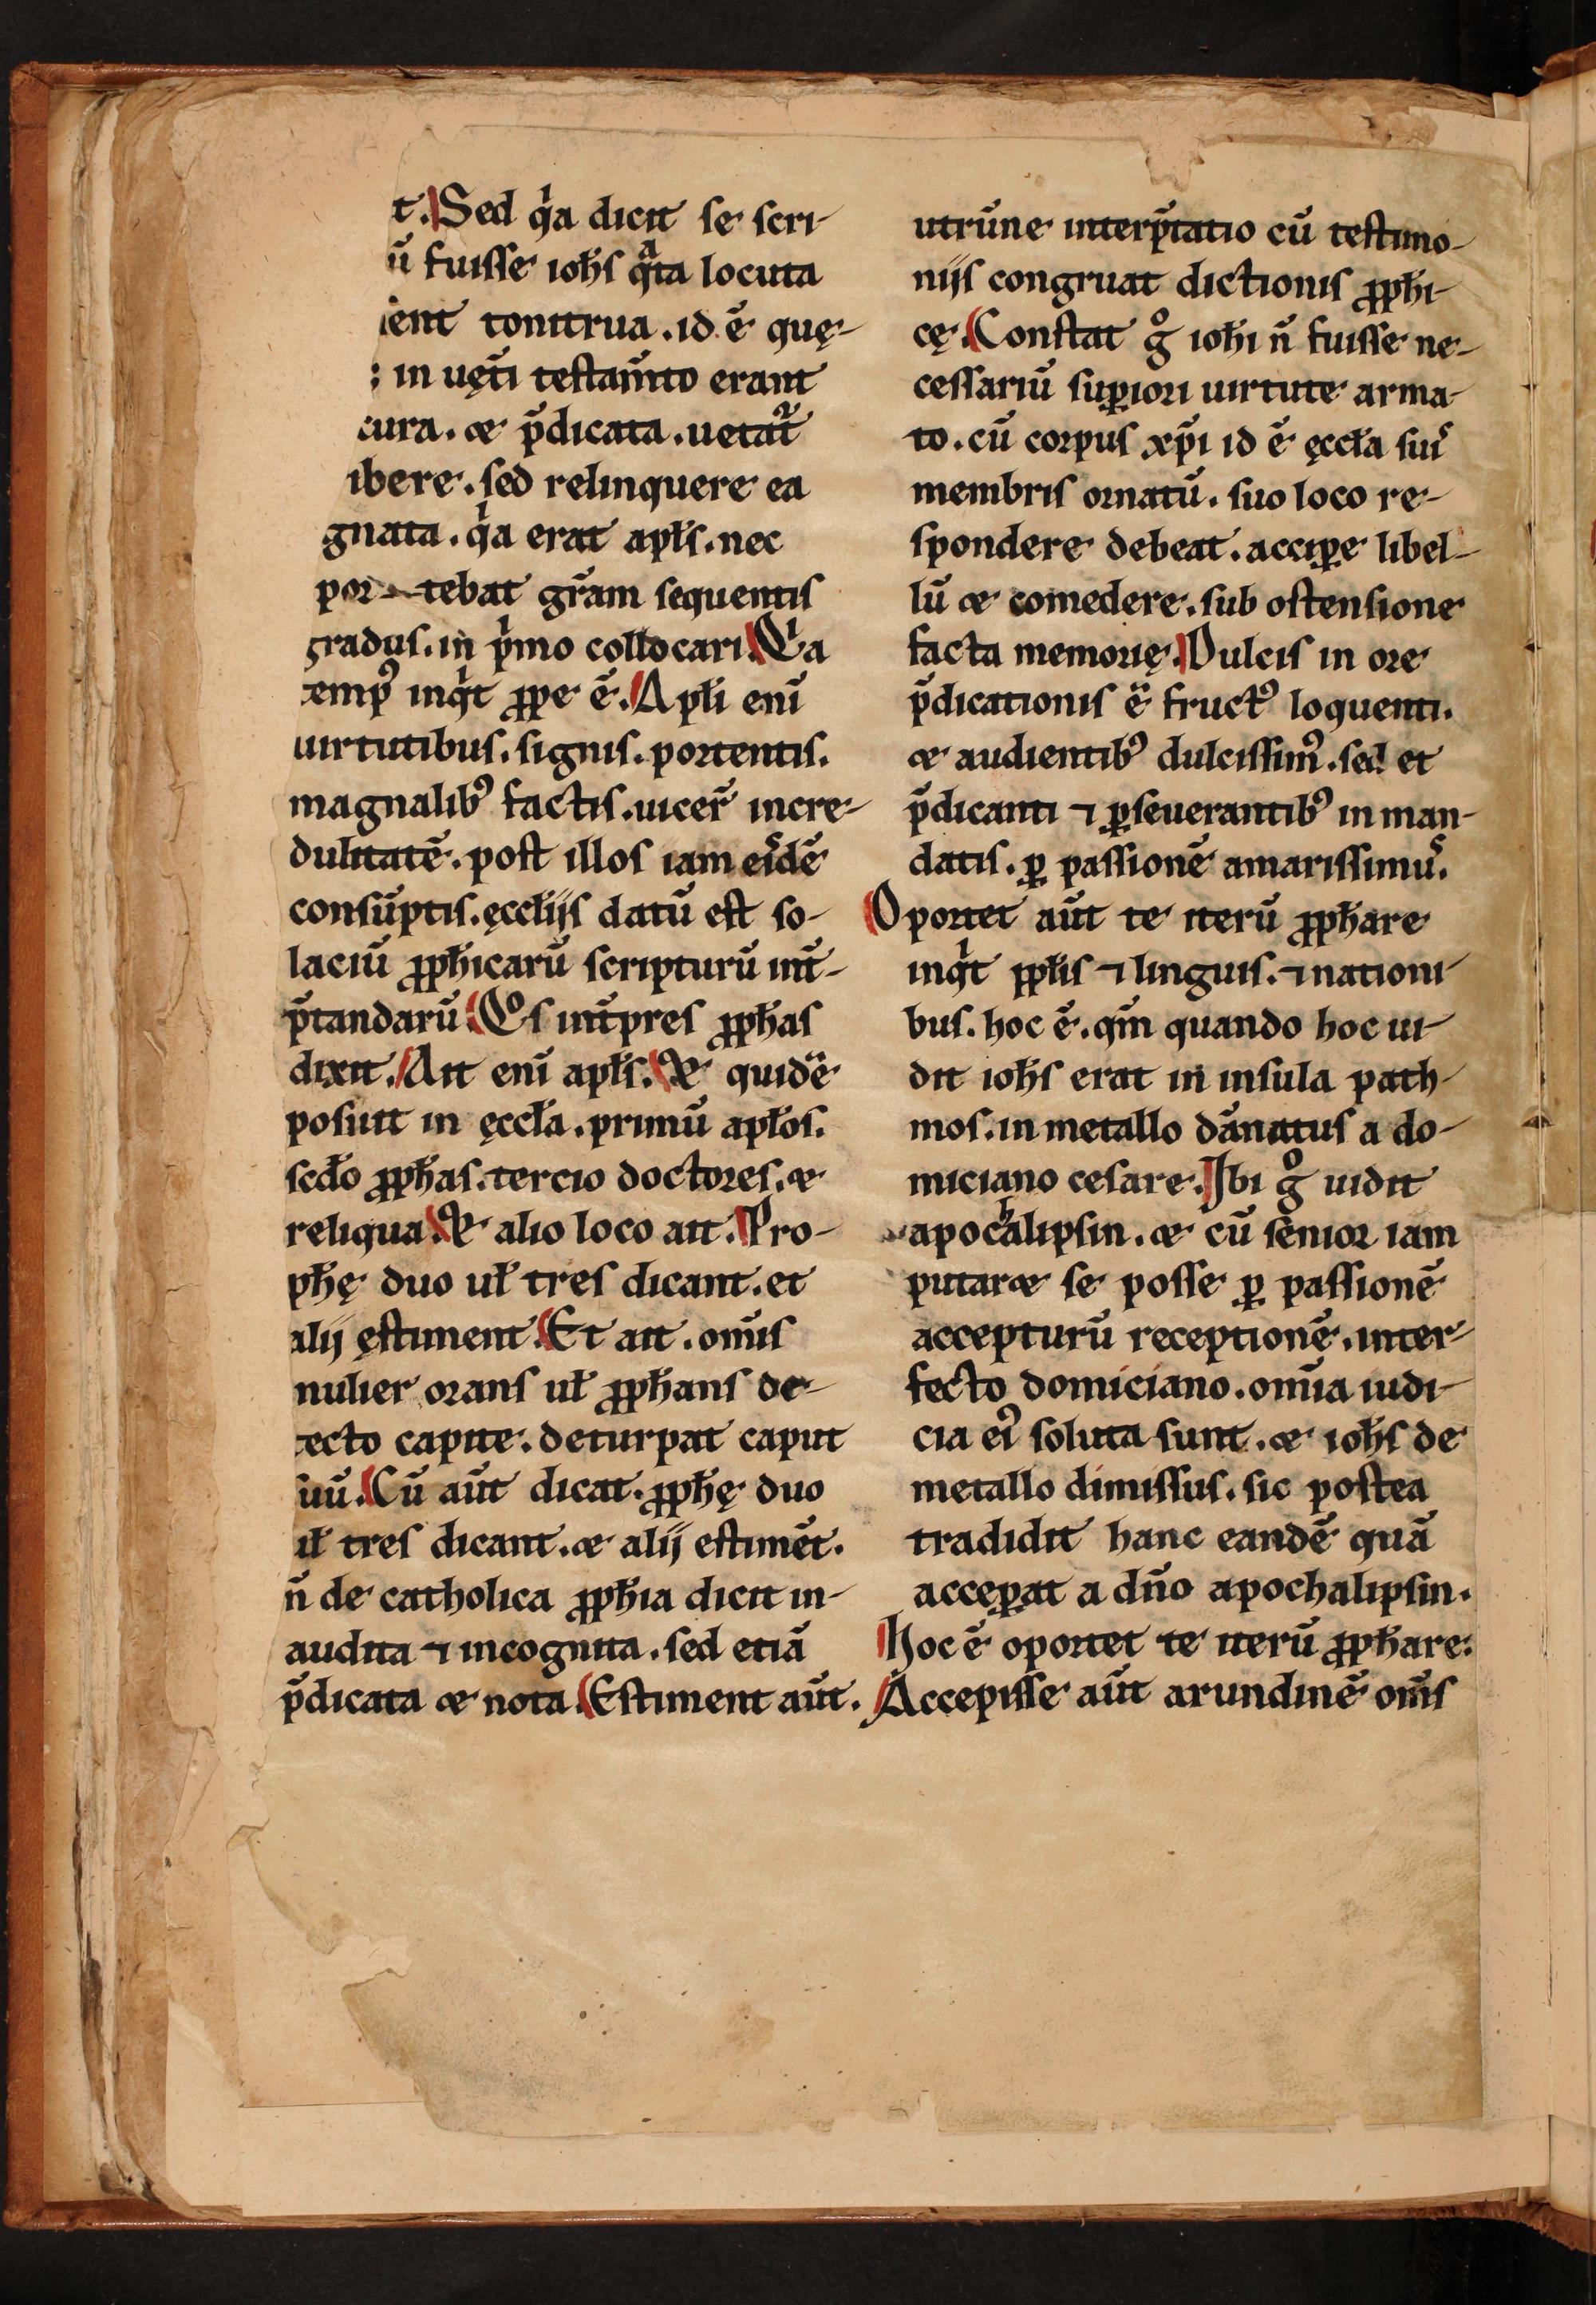 t. Sed qͥa dicit se scri-
ū fuisse ioħs qͣta locuta
ient tonitrua. id ē quę-
; in uęti̅ testam̅to erant
tura. & p̄dicata. uetat᷑
ibere. sed relinquere ea
gnata. qͥa erat apl̅s. nec
por tebat gr̅am sequentis
gradus. in pͥmo collocari. Qͥa
temp᷒ inqͥt ꝓpe ē. Apl̅i eni̅
uirtutibus. signis. portentis.
magnalib᷒ factis. uicer̅ incre-
dulitatē. post illos iam eisdē
consūptis. ęccl̅ijs datū est so-
laciū ꝓph̅icarū scripturū int̅-
p̄tandarū. Qͦs int̅pres ꝓph̅as
dixit. Ait eni̅ apl̅s. & quidē
posuit in ęccl̅a. primū apl̅os.
scd̅o ꝓph̅as. tercio doctores. &
reliqua. & alio loco ait. Pro-
ph̅ę duo ul̅ tres dicant. et
alij ęstiment. Et ait. om̅is
mulier orans ul̅ ꝓph̅ans de-
tecto capite. deturpat caput
suū. Cū aūt dicat. ꝓph̅ę duo
ul̅ tres dicant. & alij estimēt.
n̅ de catholica ꝓph̅ia dicit in-
audita ⁊ incognita. sed etiā
p̄dicata & nota. Estiment aūt.
utrūne interp̄tatio cū testimo-
nijs congruat dictionis ꝓph̅i-
cę. Constat gͦ ioh̅i n̅ fuisse ne-
cessariū suꝑiori uirtute arma-
to. cū corpus xp̅i id ē ęccl̅a suis
membris ornatū. suo loco re-
spondere debeat. acciꝑe libel-
lū & comedere. sub ostensione
facta memorię. Dulcis in ore
p̄dicationis ē fruct᷒ loquenti.
& audientib᷒ dulcissim᷒. sed et
p̄dicanti ⁊ ꝑseuerantib᷒ in man-
datis. ꝑ passionē amarissimus.
Oportet aūt te iterū ꝓph̅are
inqͥt ppl̅is ⁊ linguis. ⁊ nationi-
bus. hoc ē. qm̅ quando hoc ui-
dit ioh̅s erat in insula path-
mos. in metallo dānatus a do-
miciano cesare. Ibi gͦ uidit
apocʰalipsin. & cū senior iam
putar& se posse ꝑ passionē
accepturū receptionē. inter-
fecto domiciano. omīa iudi-
cia ei᷒ soluta sunt. & ioh̅s de
metallo dimissus. sic postea
tradidit hanc eandē quā
acceꝑat a dn̅o apochalipsin.
hoc ē oportet te iterū ꝓph̅are:
Accepisse aūt arundinē om̅is